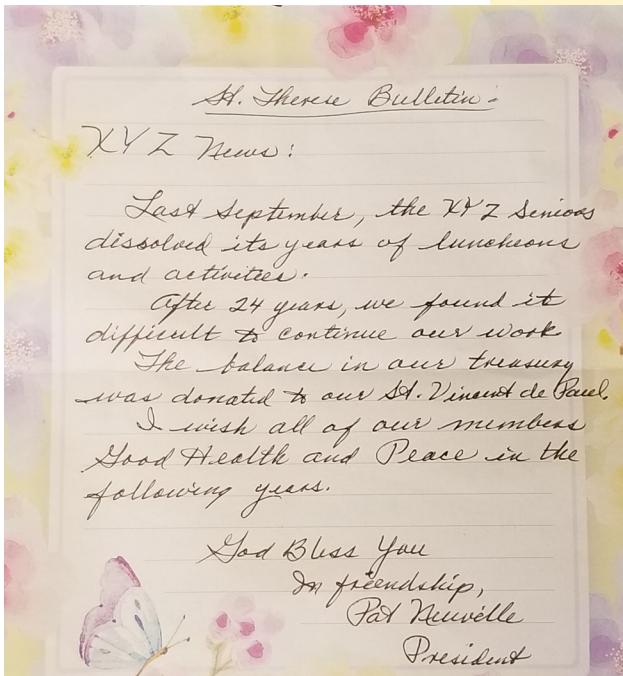 St. Therese Bulletin:
XYZ News:
Last September, the XYZ Seniors
dissolved its years of luncheons
and activities.
After 24 years, we found it
difficult to continue our work
The balance in our treasury
was donated to our St. Vincent de Paul.
I wish all of our members
Good Health and Peace in the
following years.
God Bless You
In friendship,
Pat Neuville
President